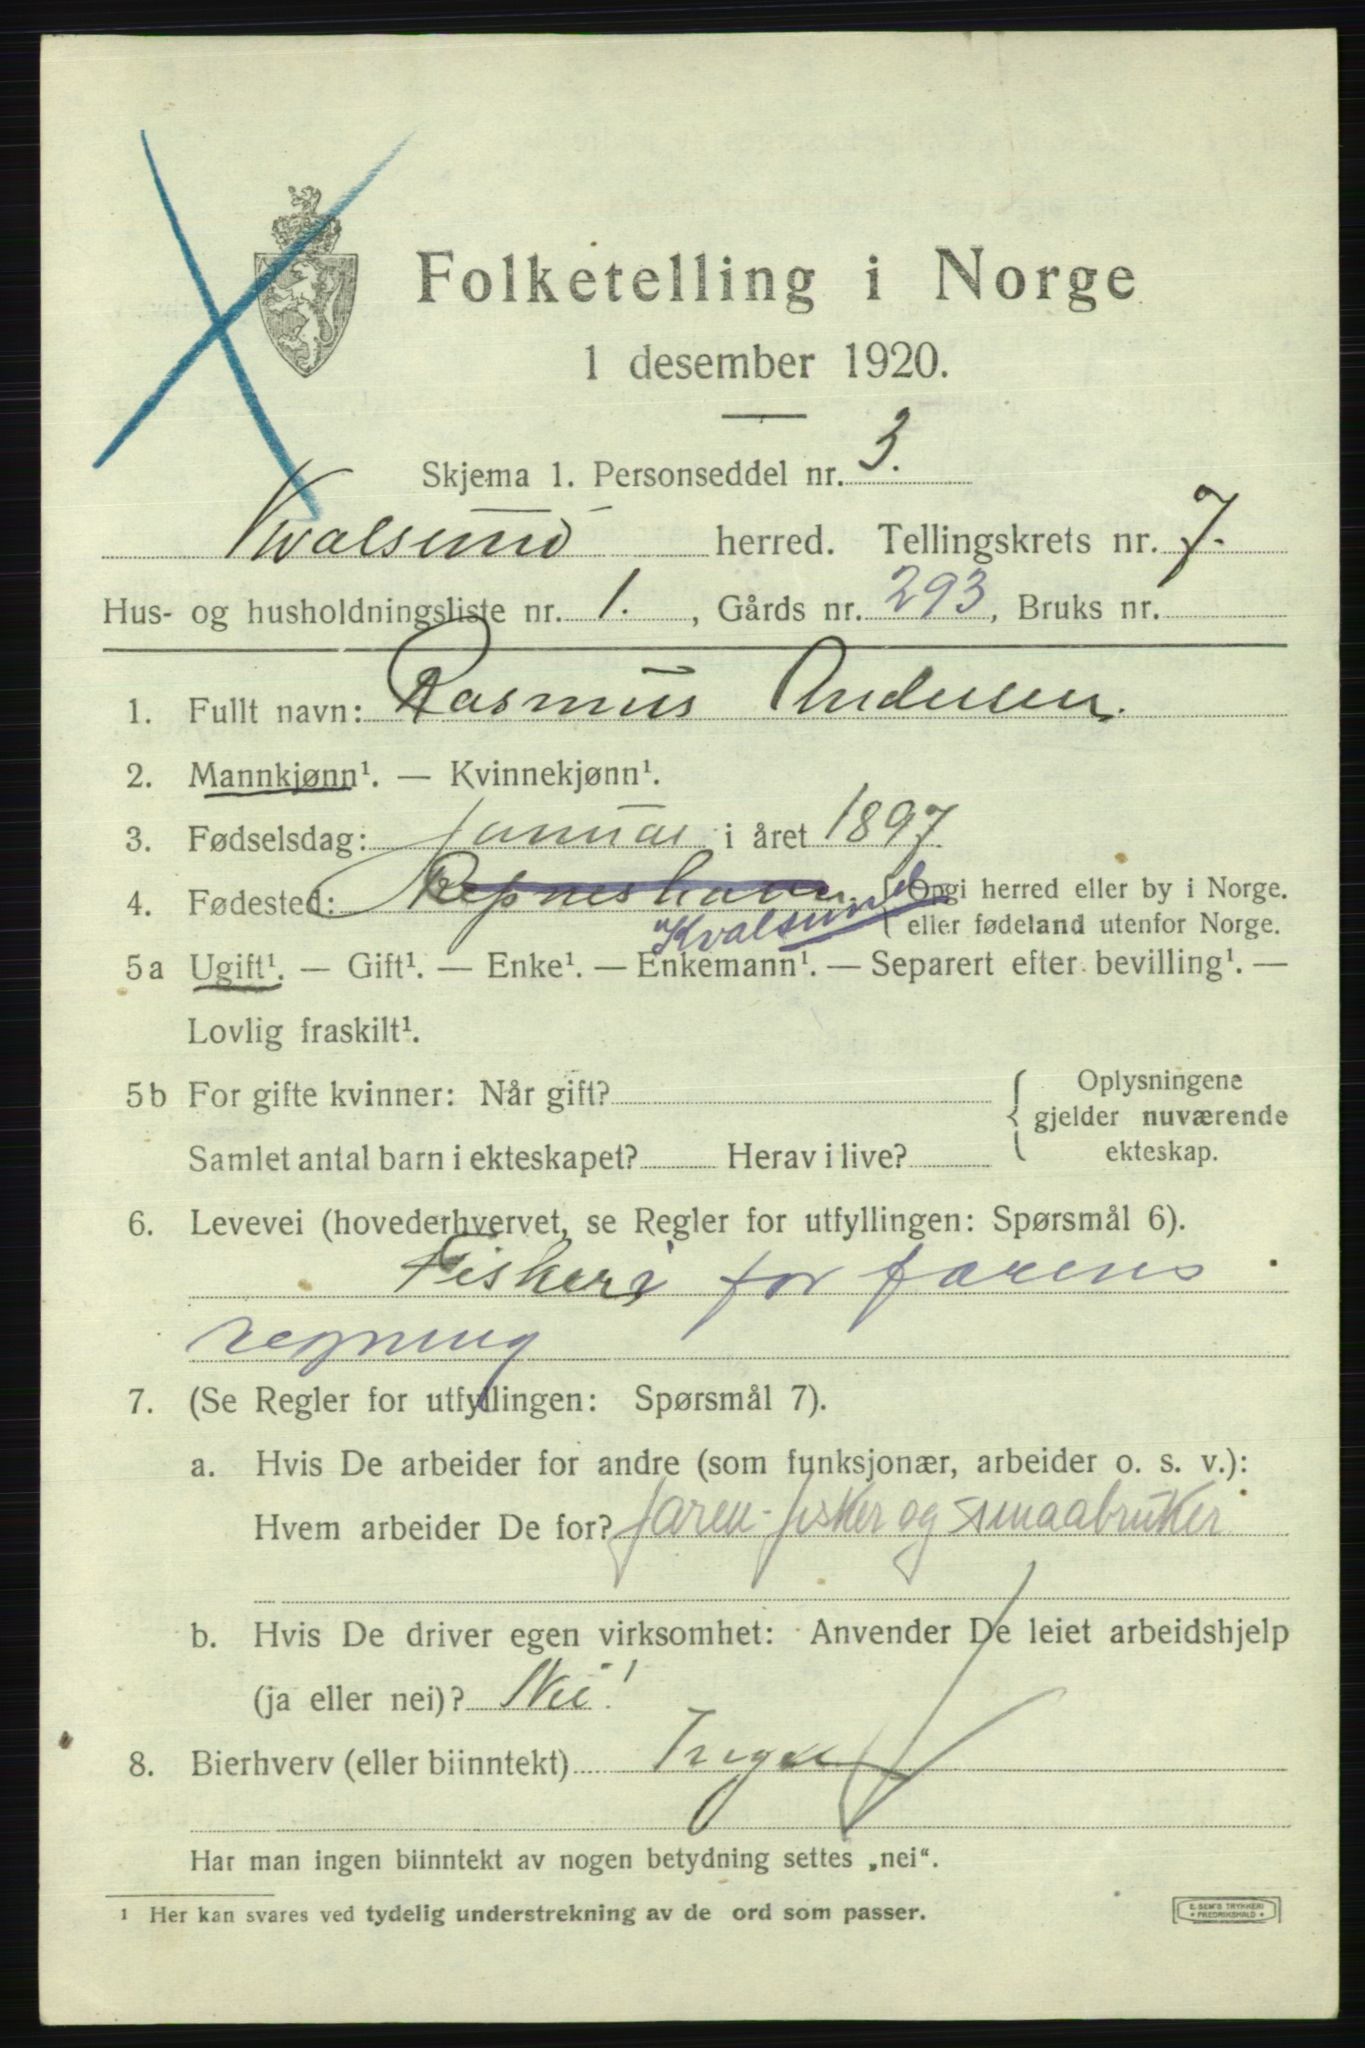 Folketelling i Norge
1 desember 1920.
Skjema 1. Personseddel nr. 3.
Kvalsund herred. Tellingskrets nr. 7.
Hus- og husholdningsliste nr. 1. , Gårds nr. 293, Bruks nr.
1. Fullt navn: Rasmus Andersen.
2. Mannkjønn¹. — Kvinnekjønn¹.
3. Fødselsdag: Januar i året 1897
4. Fødested: { Opgi herred eller by i Norge.
Kvalsund eller fødeland utenfor Norge.
5a Ugift¹. — Gift¹. — Enke¹. — Enkemann¹. — Separert efter bevilling¹. —
Lovlig fraskilt¹.
5b For gifte kvinner: Når gift? { Oplysningene
gjelder nuværende
Samlet antal barn i ekteskapet? Herav i live? ekteskap.
6. Levevei (hovederhvervet, se Regler for utfyllingen: Spørsmål 6).
Fiskeri for farens
regning
7. (Se Regler for utfyllingen: Spørsmål 7).
a. Hvis De arbeider for andre (som funksjonær, arbeider o. s. v.):
Hvem arbeider De for? faren - fisker og smaabruker
b. Hvis De driver egen virksomhet: Anvender De leiet arbeidshjelp
(ja eller nei)? Nei!
8. Bierhverv (eller biinntekt) Ingen
Har man ingen biinntekt av nogen betydning settes „nei“.
¹ Her kan svares ved tydelig understrekning av de ord som passer.
E. SEM'S TRYKKERI
* FREDRIKSHALD *